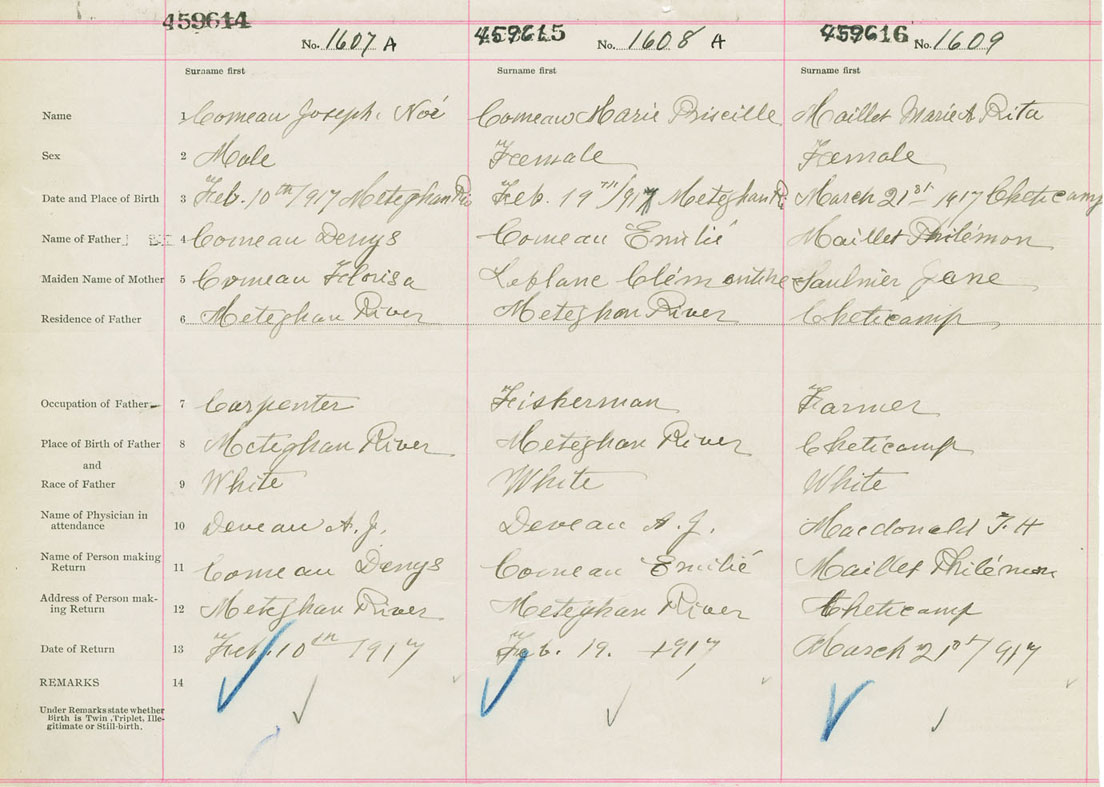 459614 459615 459616
No. 1607 A No. 1608 A No. 1609
Surname first Surname first Surname first
Name 1 Comeau Joseph. Noé Comeau Marie Priscille Maillet Marie A Rita
Sex 2 Male Female Female
Date and Place of Birth 3 Feb. 10th/917 Meteghan Feb. 19TH/917 Meteghan R March 21st 1917 Cheticamp
Name of Father 4 Comeau Denys Comeau Emilié Maillet Philémon
Maiden Name of Mother 5 Comeau Florisa Leblanc Clémentine Saulnier Jane
Residence of Father 6 Meteghan River Meteghan River Cheticamp
Occupation of Father 7 Carpenter Fisherman Farmer
Place of Birth of Father 8 Meteghan River Meteghan River Cheticamp
and
Race of Father 9 White White White
Name of Physician in
attendance 10 Deveau A. J. Deveau A. J. Macdonald T. H
Name of Person making
Return 11 Comeau Denys Comeau Emilié Maillet Philémon
Address of Person mak-
ing Return 12 Meteghan River Meteghan River Cheticamp
Date of Return 13 Feb. 10th/1917 Feb. 19. 1917 March 21st/917
REMARKS 14
Under Remarks state whether
Birth is Twin, Triplet, Ille-
gitimate or Still-birth.